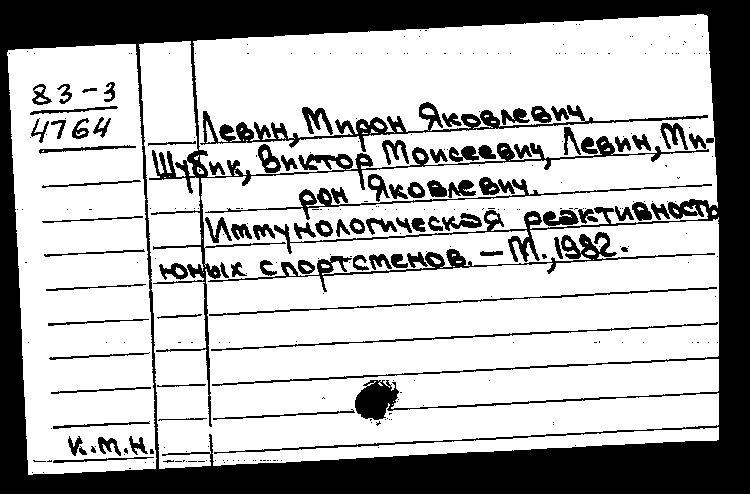 83-3
4764
Левин, Мирон Яковлевич.
Шубик, Виктор Моисеевич, Левин, Ми-
рон Яковлевич.
Иммунологическая реактивность
юных спортсменов. — М., 1982.
к.м.н.